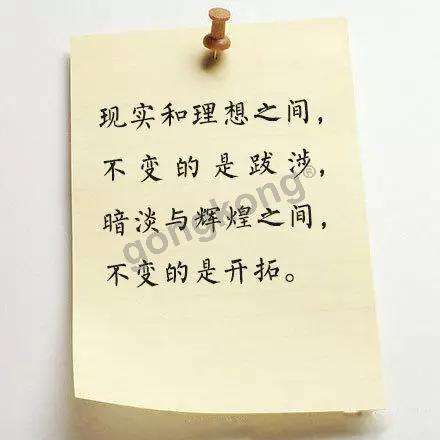 现实和理想之间，
不变的是跋涉，
暗淡与辉煌之间，
不变的是开拓。
gongkong®